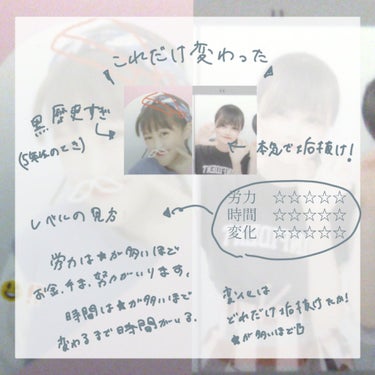 これだけ変わった
黒歴史すぎ
(5年生のとき)
本気で垢抜け!
レベルの見方
労力 ☆☆☆☆☆
時間 ☆☆☆☆☆
変化 ☆☆☆☆☆
労力は★が多いほど
お金、手ま、努力がいります。
時間は★が多いほど
変わるまで時間がいる。
変化は
どれだけ垢抜けたか!
★が多いほど